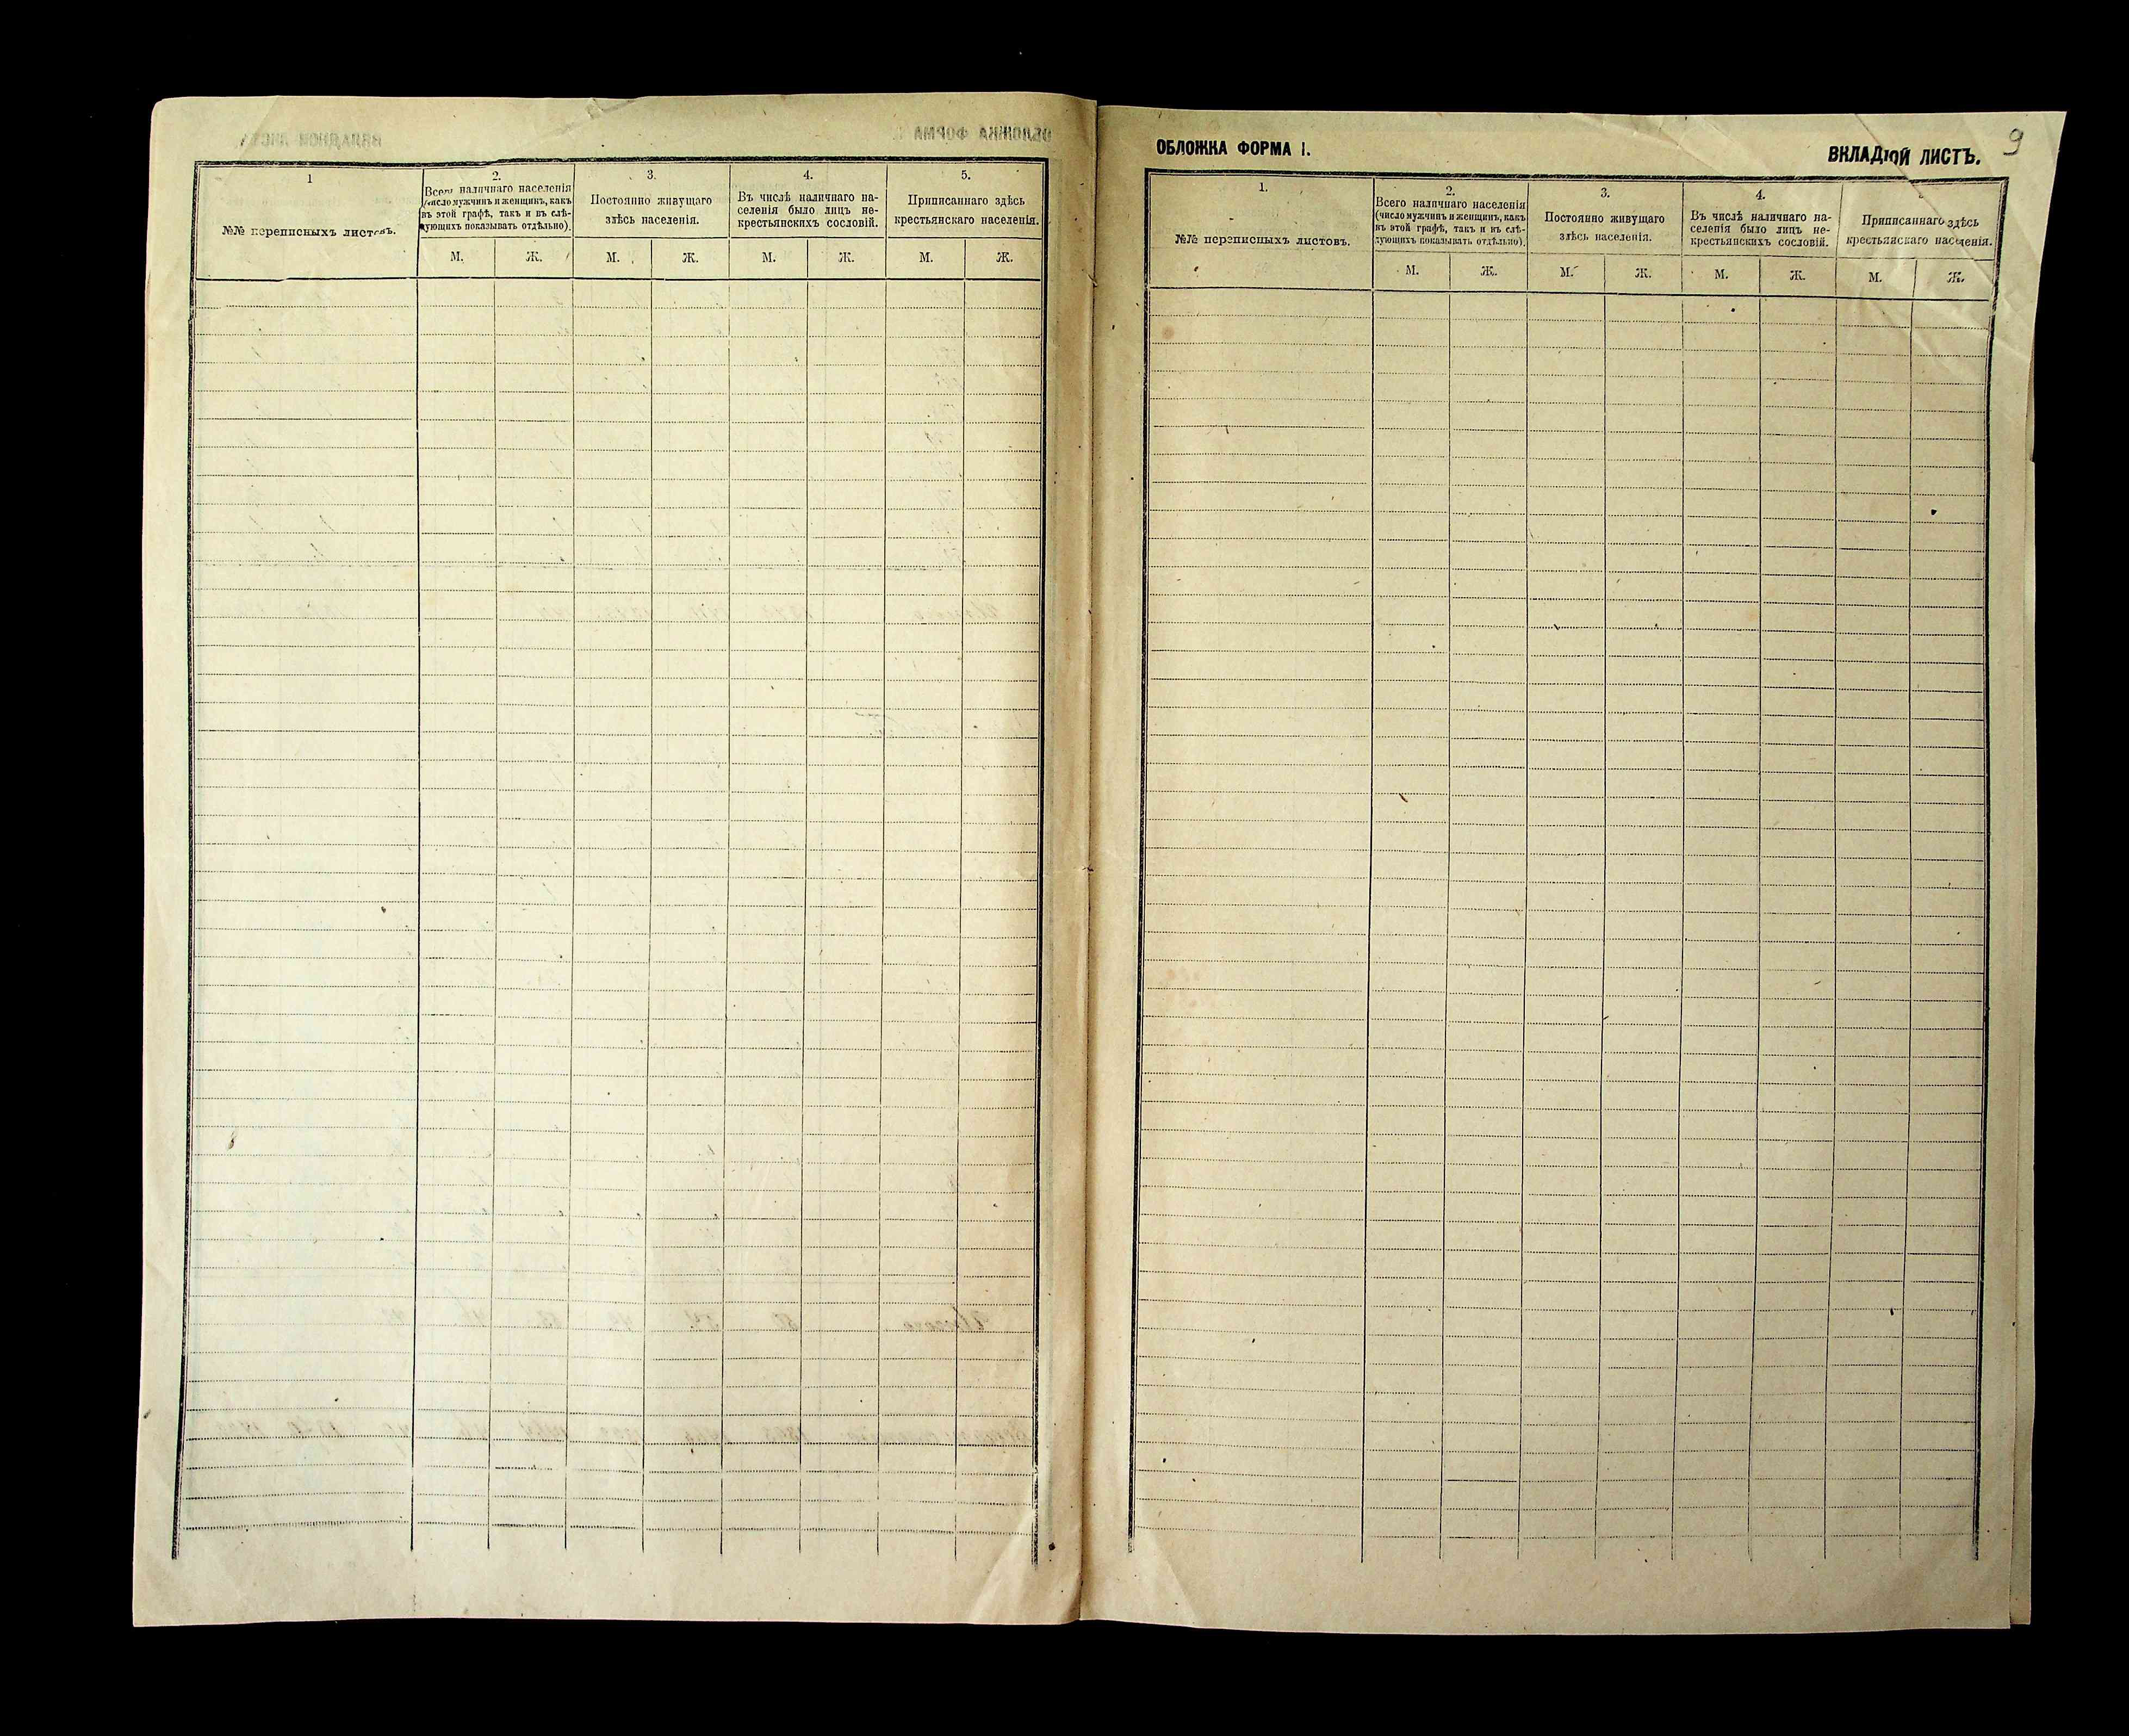 1
№№ переписныхъ листовъ.
2.
Всего наличнаго населенія
(число мужчинъ и женщинъ, какъ
въ этой графѣ, такъ и въ слѣ-
дующихъ показывать отдѣльно).
3.
Постоянно живущаго
здѣсь населенія.
4.
Въ числѣ наличнаго на-
селенія было лицъ не-
крестьянскихъ сословій.
5.
Приписаннаго здѣсь
крестьянскаго населенія.
М. Ж. М. Ж. М. Ж. М. Ж.
ОБЛОЖКА ФОРМА I.
ВКЛАДНОЙ ЛИСТЪ.
9
1.
№№ переписныхъ листовъ.
2.
Всего наличнаго населенія
(число мужчинъ и женщинъ, какъ
въ этой графѣ, такъ и въ слѣ-
дующихъ показывать отдѣльно).
3.
Постоянно живущаго
здѣсь населенія.
4.
Въ числѣ наличнаго на-
селенія было лицъ не-
крестьянскихъ сословій.
Приписаннаго здѣсь
крестьянскаго населенія.
М. Ж. М. Ж. М. Ж. М. Ж.